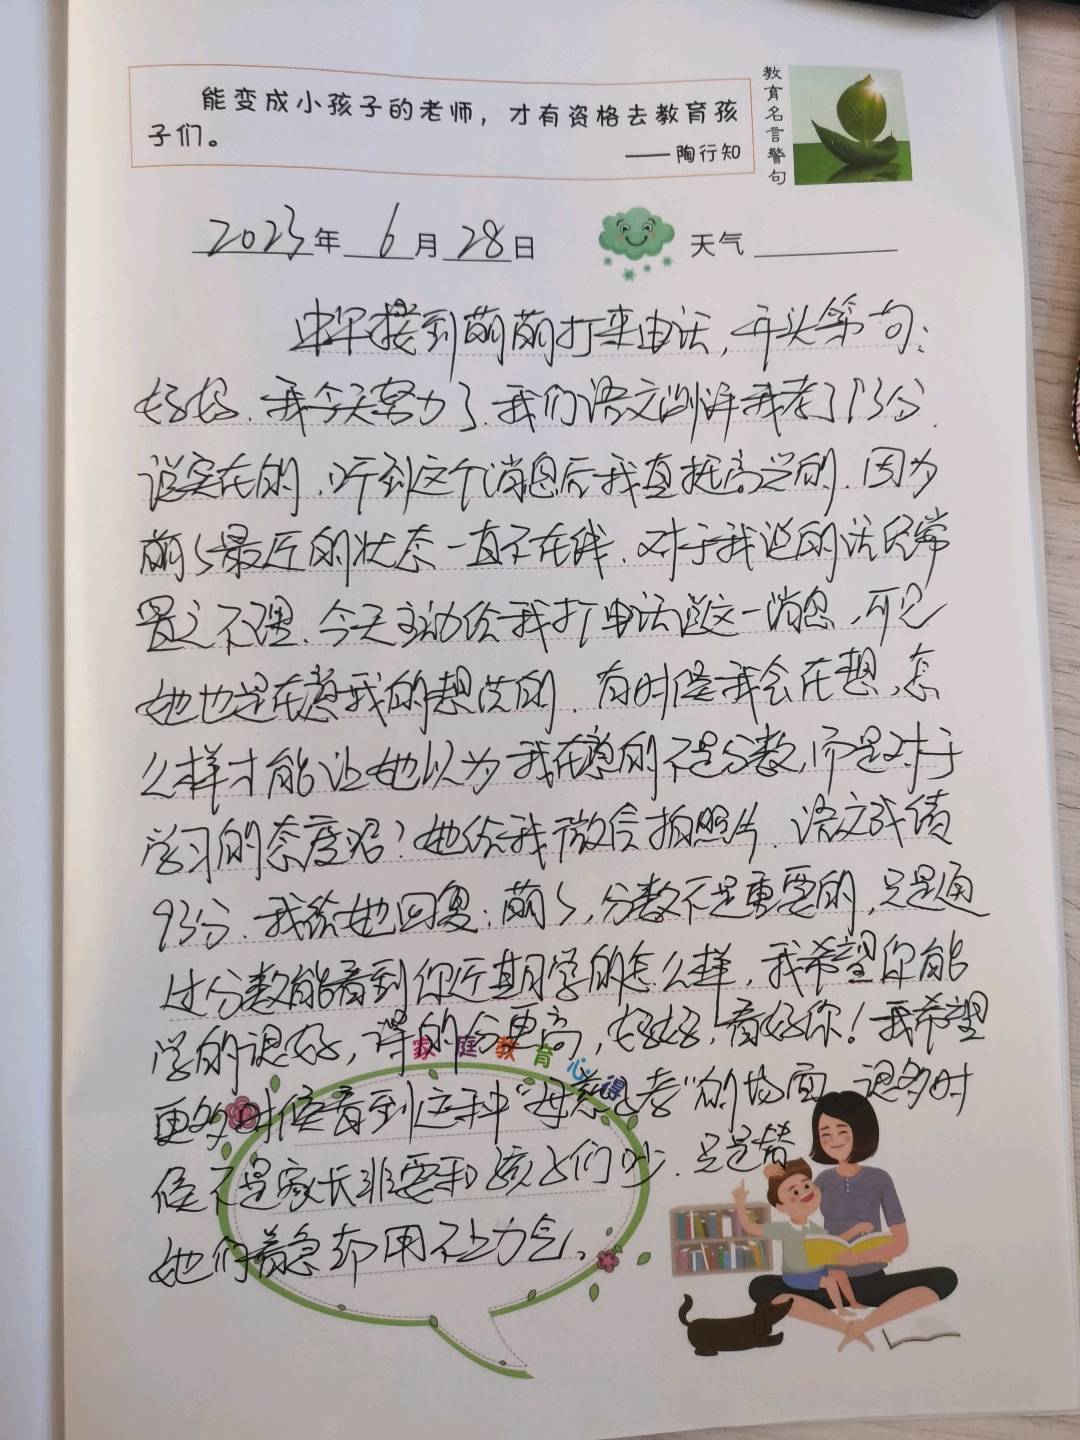 能变成小孩子的老师，才有资格去教育孩
子们。
——陶行知
教育名言警句
2023年6月28日 天气
中午接到萌萌打来电话，开头第一句：
好好、我今天努力了、我们语文测评我考了93分、
说实在的、听到这个消息后我真挺高兴的、因为
萌萌最近的状态一直不在线、对于我说的话经常
置之不理、今天主动给我打电话说这一消息，可见
她也是在意我的想法的、有时候我会在想，怎
么样才能让她以为我在意的不是分数，而是对于
学习的态度呢？她给我微信拍照片、语文成绩
93分、我给她回复：萌萌，分数不是重要的，只是通
过分数能看到你近期学的怎么样，我希望你能
学的更好，得的分更高，好好，看好你！我希望
更多时候看到这种“母慈子孝”的场面、很多时
候不是家长非要和孩子们吵、只是替
她们着急却用不上力气、
家庭教育心得